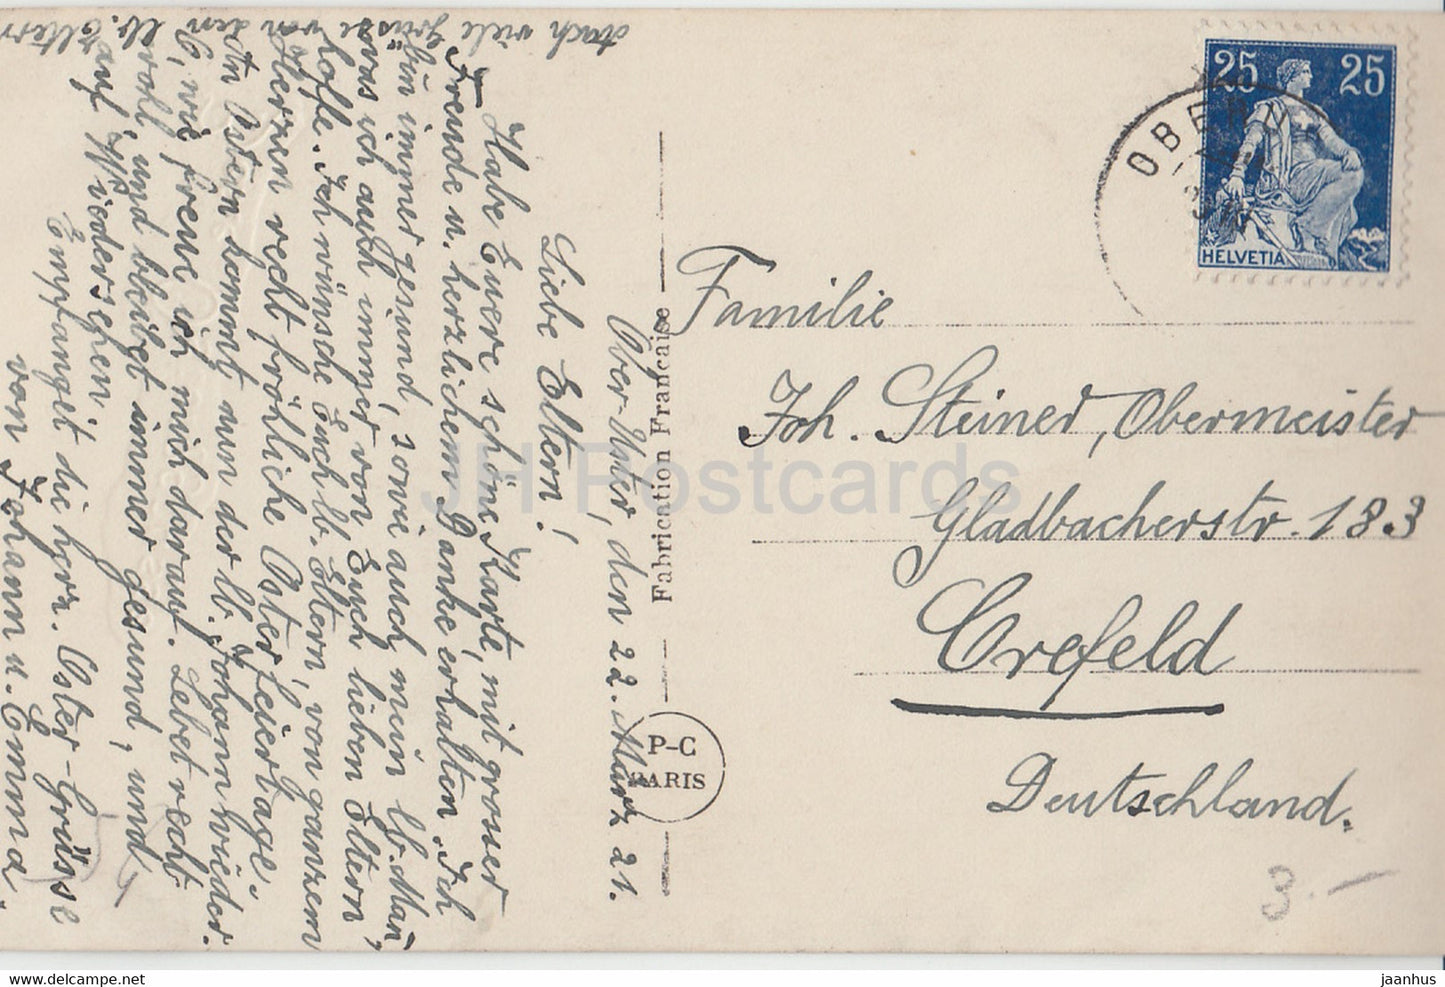 Ober-Uster, den 22. März 21.
Liebe Eltern!
Habe Euere schöne Karte, mit grosser
Freude u. herzlichem Danke erhalten. Ich
bin immer gesund, sowie auch mein lb. Man,
was ich auch immer von Euch lieben Eltern
hoffe. Ich wünsche Euch lb. Eltern, von ganzem
Herzen recht fröhliche Osterfeiertage.
In Ostern kommt nun der lb. Johann wieder.
O, wie freue ich mich darauf. Lebet recht
wohl und bleibet immer gesund, und
auf Wiedersehen.
Empfanget die herz. Oster-Grüsse
von Johann u. Emma.
Auch viele Grüsse von den lb. Eltern
Fabrication Française
P-C
PARIS
25 25
HELVETIA
OBER
Familie
Joh. Steiner, Obermeister
Gladbacherstr. 183
Crefeld
Deutschland.
3.-
JH Postcards
delcampe.net
jaanhus